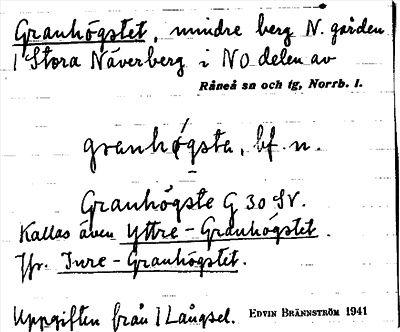 Granhögstet, mindre berg N. gården
1 Stora Näverberg i NO delen av
Råneå sn och tg, Norrb. l.
granhögsta, bf. n.
Granhögste G 30 SV.
Kallas även Yttre-Granhögstet.
Jfr. Inre-Granhögstet.
Uppgiften från 1 Långsel. EDVIN BRÄNNSTRÖM 1941